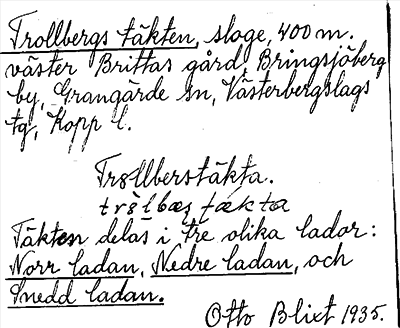 Trollbergs täkten, sloge, 400 m.
väster Brittas gård, Bringsjöberg
by, Grangärde sn, Västerbergslags
tg, Kopp l.
Trollberstäkta.
Täkten delas i tre olika lador:
Norr ladan, Nedre ladan, och
Snedd ladan.
Otto Blixt 1935.